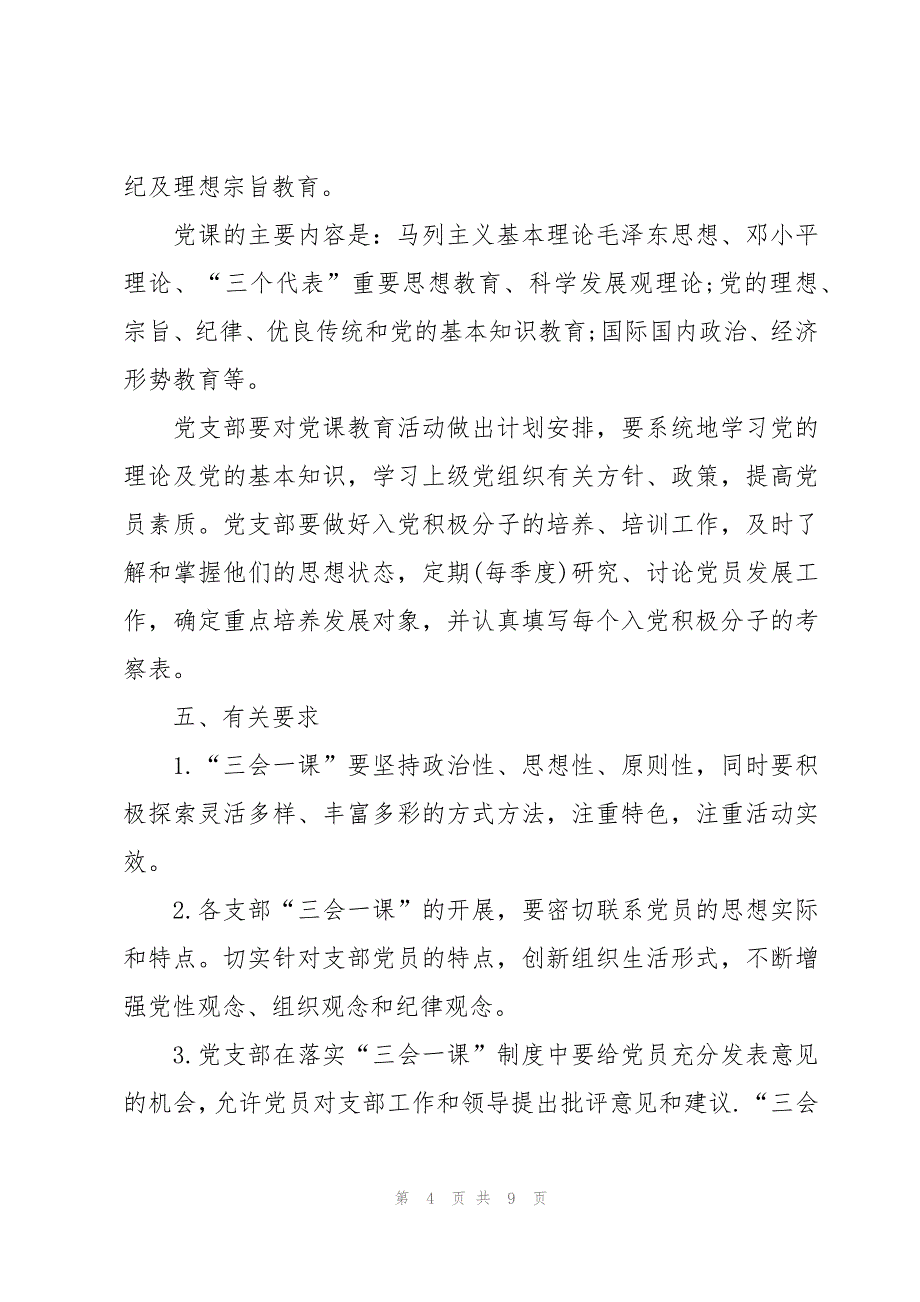 纪及理想宗旨教育。
党课的主要内容是：马列主义基本理论毛泽东思想、邓小平
理论、“三个代表”重要思想教育、科学发展观理论;党的理想、
宗旨、纪律、优良传统和党的基本知识教育;国际国内政治、经济
形势教育等。
党支部要对党课教育活动做出计划安排，要系统地学习党的
理论及党的基本知识，学习上级党组织有关方针、政策，提高党
员素质。党支部要做好入党积极分子的培养、培训工作，及时了
解和掌握他们的思想状态，定期(每季度)研究、讨论党员发展工
作，确定重点培养发展对象，并认真填写每个入党积极分子的考
察表。
五、有关要求
1.“三会一课”要坚持政治性、思想性、原则性，同时要积
极探索灵活多样、丰富多彩的方式方法，注重特色，注重活动实
效。
2.各支部“三会一课”的开展，要密切联系党员的思想实际
和特点。切实针对支部党员的特点，创新组织生活形式，不断增
强党性观念、组织观念和纪律观念。
3.党支部在落实“三会一课”制度中要给党员充分发表意见
的机会，允许党员对支部工作和领导提出批评意见和建议.“三会
第 4 页 共 9 页